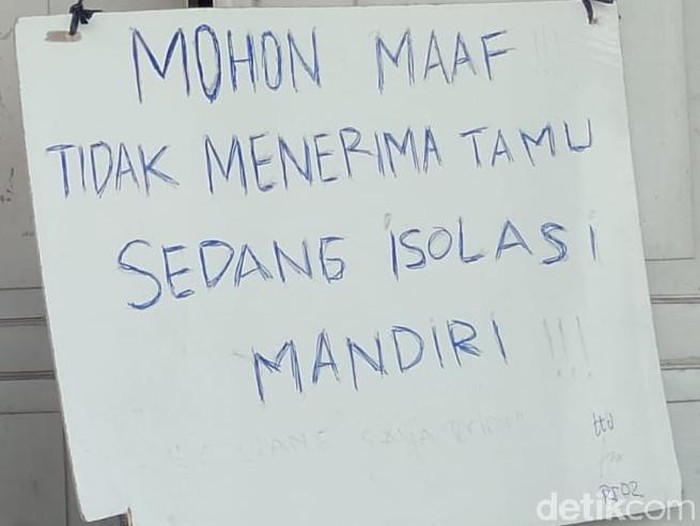 MOHON MAAF
TIDAK MENERIMA TAMU
SEDANG ISOLASI
MANDIRI !!!
ttd
detikcom